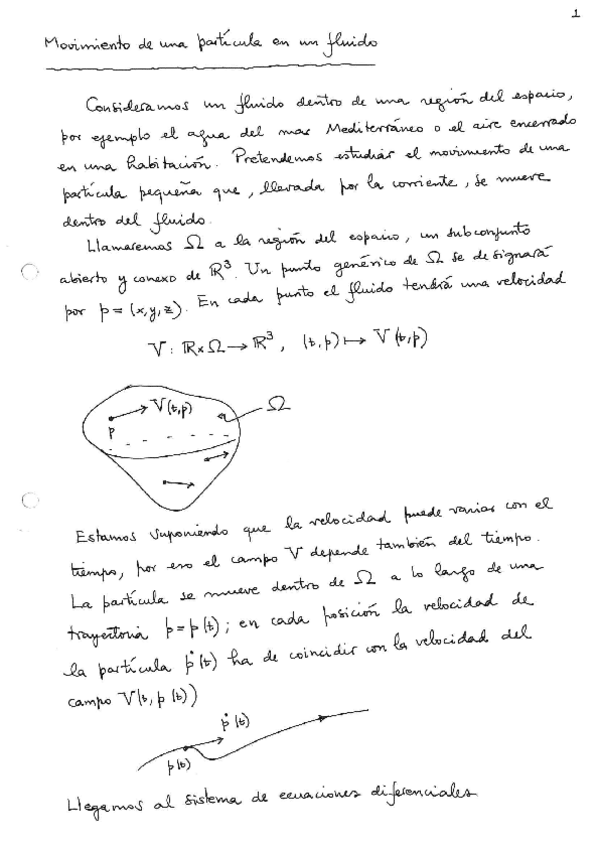 1
Movimiento de una partícula en un fluido
Consideramos un fluido dentro de una región del espacio,
por ejemplo el agua del mar Mediterráneo o el aire encerrado
en una habitación. Pretendemos estudiar el movimiento de una
partícula pequeña que, llevada por la corriente, se mueve
dentro del fluido.
Llamaremos Ω a la región del espacio, un subconjunto
abierto y conexo de ℝ³. Un punto genérico de Ω se designará
por p = (x,y,z). En cada punto el fluido tendrá una velocidad
V : ℝ×Ω → ℝ³, (t,p) ↦ V(t,p)
V(t,p)
Ω
p
Estamos suponiendo que la velocidad puede variar con el
tiempo, por eso el campo V depende también del tiempo.
La partícula se mueve dentro de Ω a lo largo de una
trayectoria p = p(t); en cada posición la velocidad de
la partícula ṗ(t) ha de coincidir con la velocidad del
campo V(t, p(t))
ṗ(t)
p(t)
Llegamos al sistema de ecuaciones diferenciales